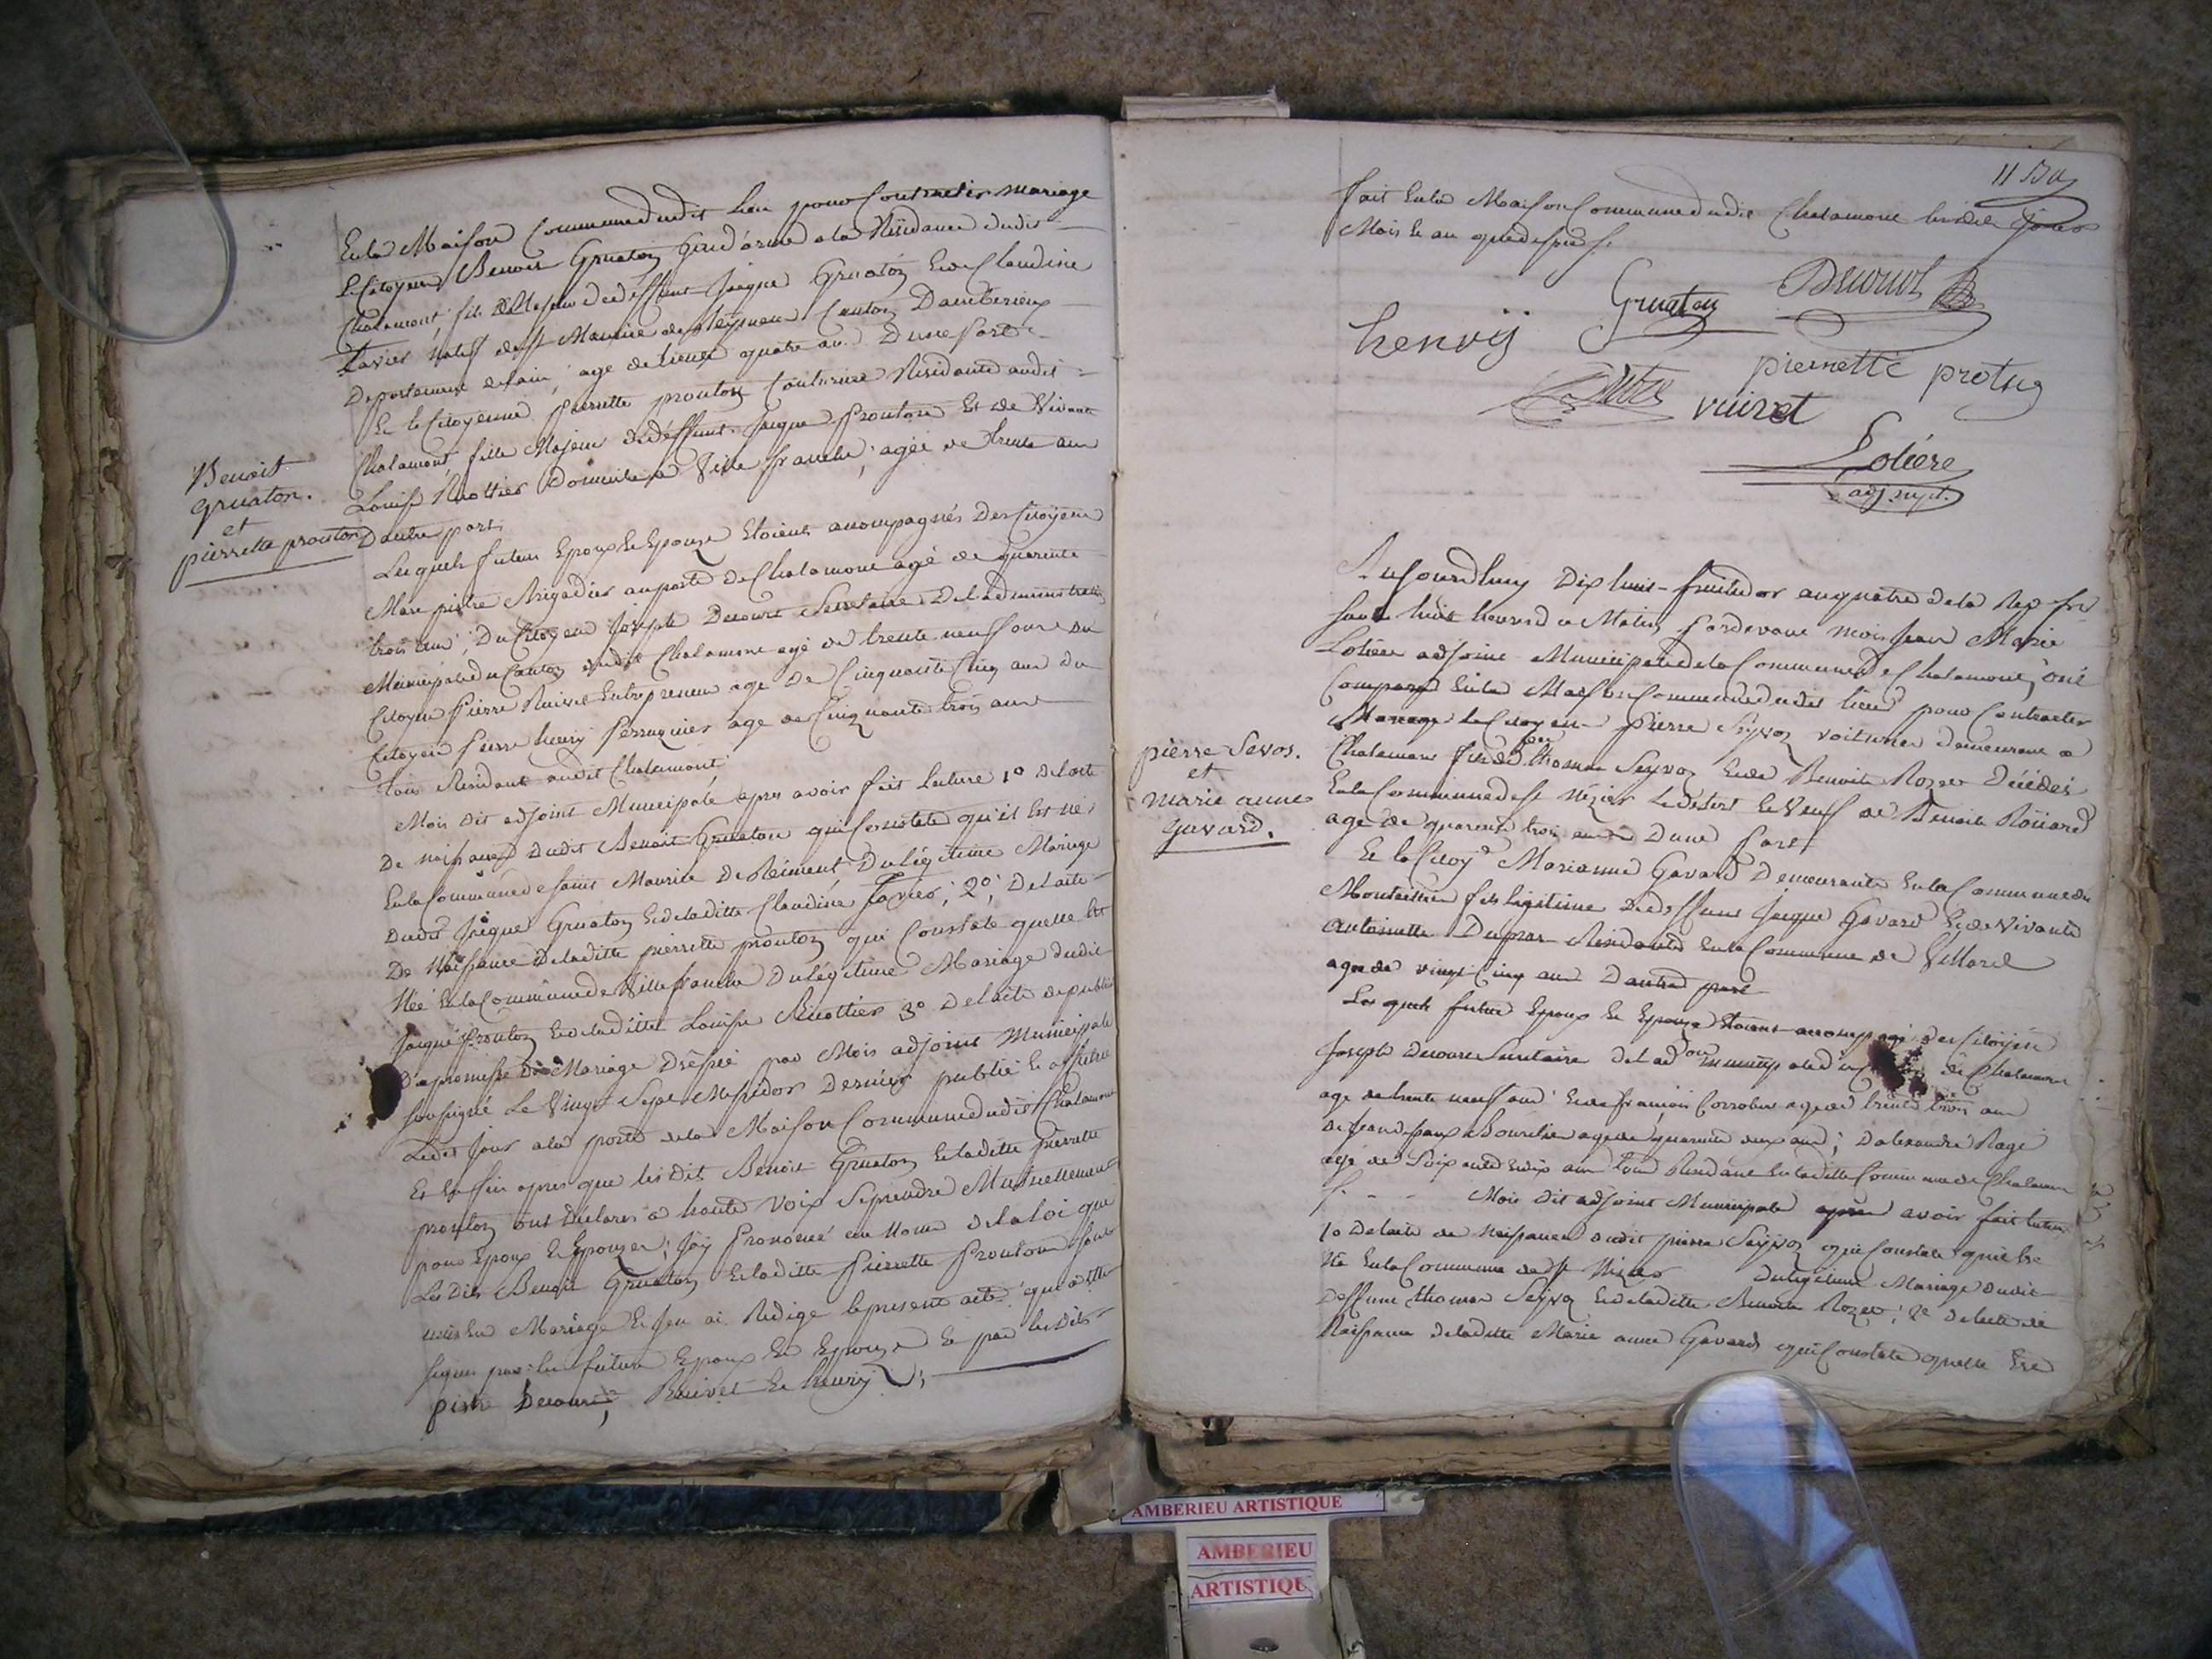 En la Maison Commune dudit lieu pour Contracter mariage
Le Citoyen Benoit Gruaton Gend'arme a la Résidance dudit
Chalamont, fils Majeur de deffunt Jaque Gruaton et de Claudine
Favier natif de St Maurice de Canton Damberieux
Departement de lain, age de trente quatre an Dune part
Et la Citoyenne Pierrette prouton Couturiere Résidante audit
Chalamont fille Majeur de deffunt Jaque Prouton Et de Vivante
Louise Ruottier Domiciliée a Ville franche, agée de trente an
Dautre part
Benoit
gruaton.
et
pierrette prouton
Lesquels futeur Epoux Et Epouze Etoient acompagnés Des Citoyens
Marc pistre Brigadier au poste de Chalamont agé de quarente
trois ans, Du Citoyen Joseph Decourt Secretaire De l'administration
Municipale du Canton dudit Chalamont agé de trente neuf ans Du
Citoyen Pierre Ruivet Entrepreneur age De Cinquante Cinq ans du
Citoyen Pierre henry Perruquier age de Cinquante trois ans
Tous Résidant audit Chalamont
Moi dit adjoint Municipale apres avoir fait lecture 1° de lacte
De naissance dudit Benoit Gruaton qui Constate qu'il Est né
En la Commune de saint Maurice De Réiment Du légitime Mariage
dudit Jaque Gruaton Et de laditte Claudine Favier; 2°, De lacte
De Naissance De laditte pierrette prouton qui Constate quelle Est
Née En la Commune de Villefranche Du légitime Mariage dudit
Jaque Prouton Et de laditte Louise Ruottier 3° De lacte de publi
De promesse De Mariage Dressé par Moi adjoint Municipale
soussigné Le Vingt Sept Messidor Dernier publié Et affiché
Ledit Jour a la porte de la Maison Commune dudit Chalamont
Et Enfin apres que les dits Benoit Gruaton Et laditte Pierrette
prouton ont Déclarés a haute Voix Se prendre Mutuellement
pour Epoux Et Epouze; J'ay Prononcé au Nom de la loi que
Les Dits Benoit Gruaton Et laditte Pierrette Prouton sont
unis En Mariage Et J'en ai Redigé le present acte qu'a
signer par les futeur Epoux Et Epouze Et par les dits
pistre Decourt, Ruivet Et henry;
11 Bu
fait En la Maison Commune dudit Chalamont lesdits Jours
Mois Et an que dessus
henrÿ Gruaton Decourt
Pistre vuivet pierrette protng
Loliere
adj. mpl.
Aujourdhuy Dix huit fructidor an quatre de la Rep fr
sur les huit heures du Matin Pardevant moi Jean Marie
Loliere adjoint Municipale de la Commune de Chalamont, ont
Comparu En la Maison Commune dudit lieu pour Contracter
Mariage le Citoyen Pierre Seyvoz voiturier demeurant a
Chalamont fils de feu thomas Seyvoz Et de Benoite Rozet Décédés
En la Commune de St Nizier le desert Et Veuf de Benoite Roüard
age de quarente trois ans Dune Part
pierre Sevos.
et
marie anne
gavard.
Et la Citoyne Marianne Gavard Demeurante En la Commune de
Montaillieu fille légitime de deffunt Jaque Gavard Et de Vivante
Antoinette Dupras Résidante En la Commune de Villard
age de vingt Cinq ans Dautre part
Les quels futeur Epoux Et Epouze Etoient acompagné des Citoyens
Joseph Decourt Secretaire de lad.on municipale du Canton de Chalamont
age de trente neuf ans Et de françois Corrobert age de trente trois ans
De Jean Bourdelin age de quarente deux ans; Dalexandre Ragé
age de Soixante Et dix ans Tous Résidant En laditte Commune de Chalamont
Moi dit adjoint Municipale apres avoir fait lecture
1° De lacte de Naissance dudit pierre Seyvoz qui Constate quil Est
Né En la Commune de St Nizier du légitime Mariage dudit
Deffunt thomas Seyvoz Et de laditte Benoite Rozet; 2° De lacte de
Naissance de laditte Marie anne Gavard qui Constate quelle Est
AMBERIEU ARTISTIQUE
AMBERIEU
ARTISTIQU